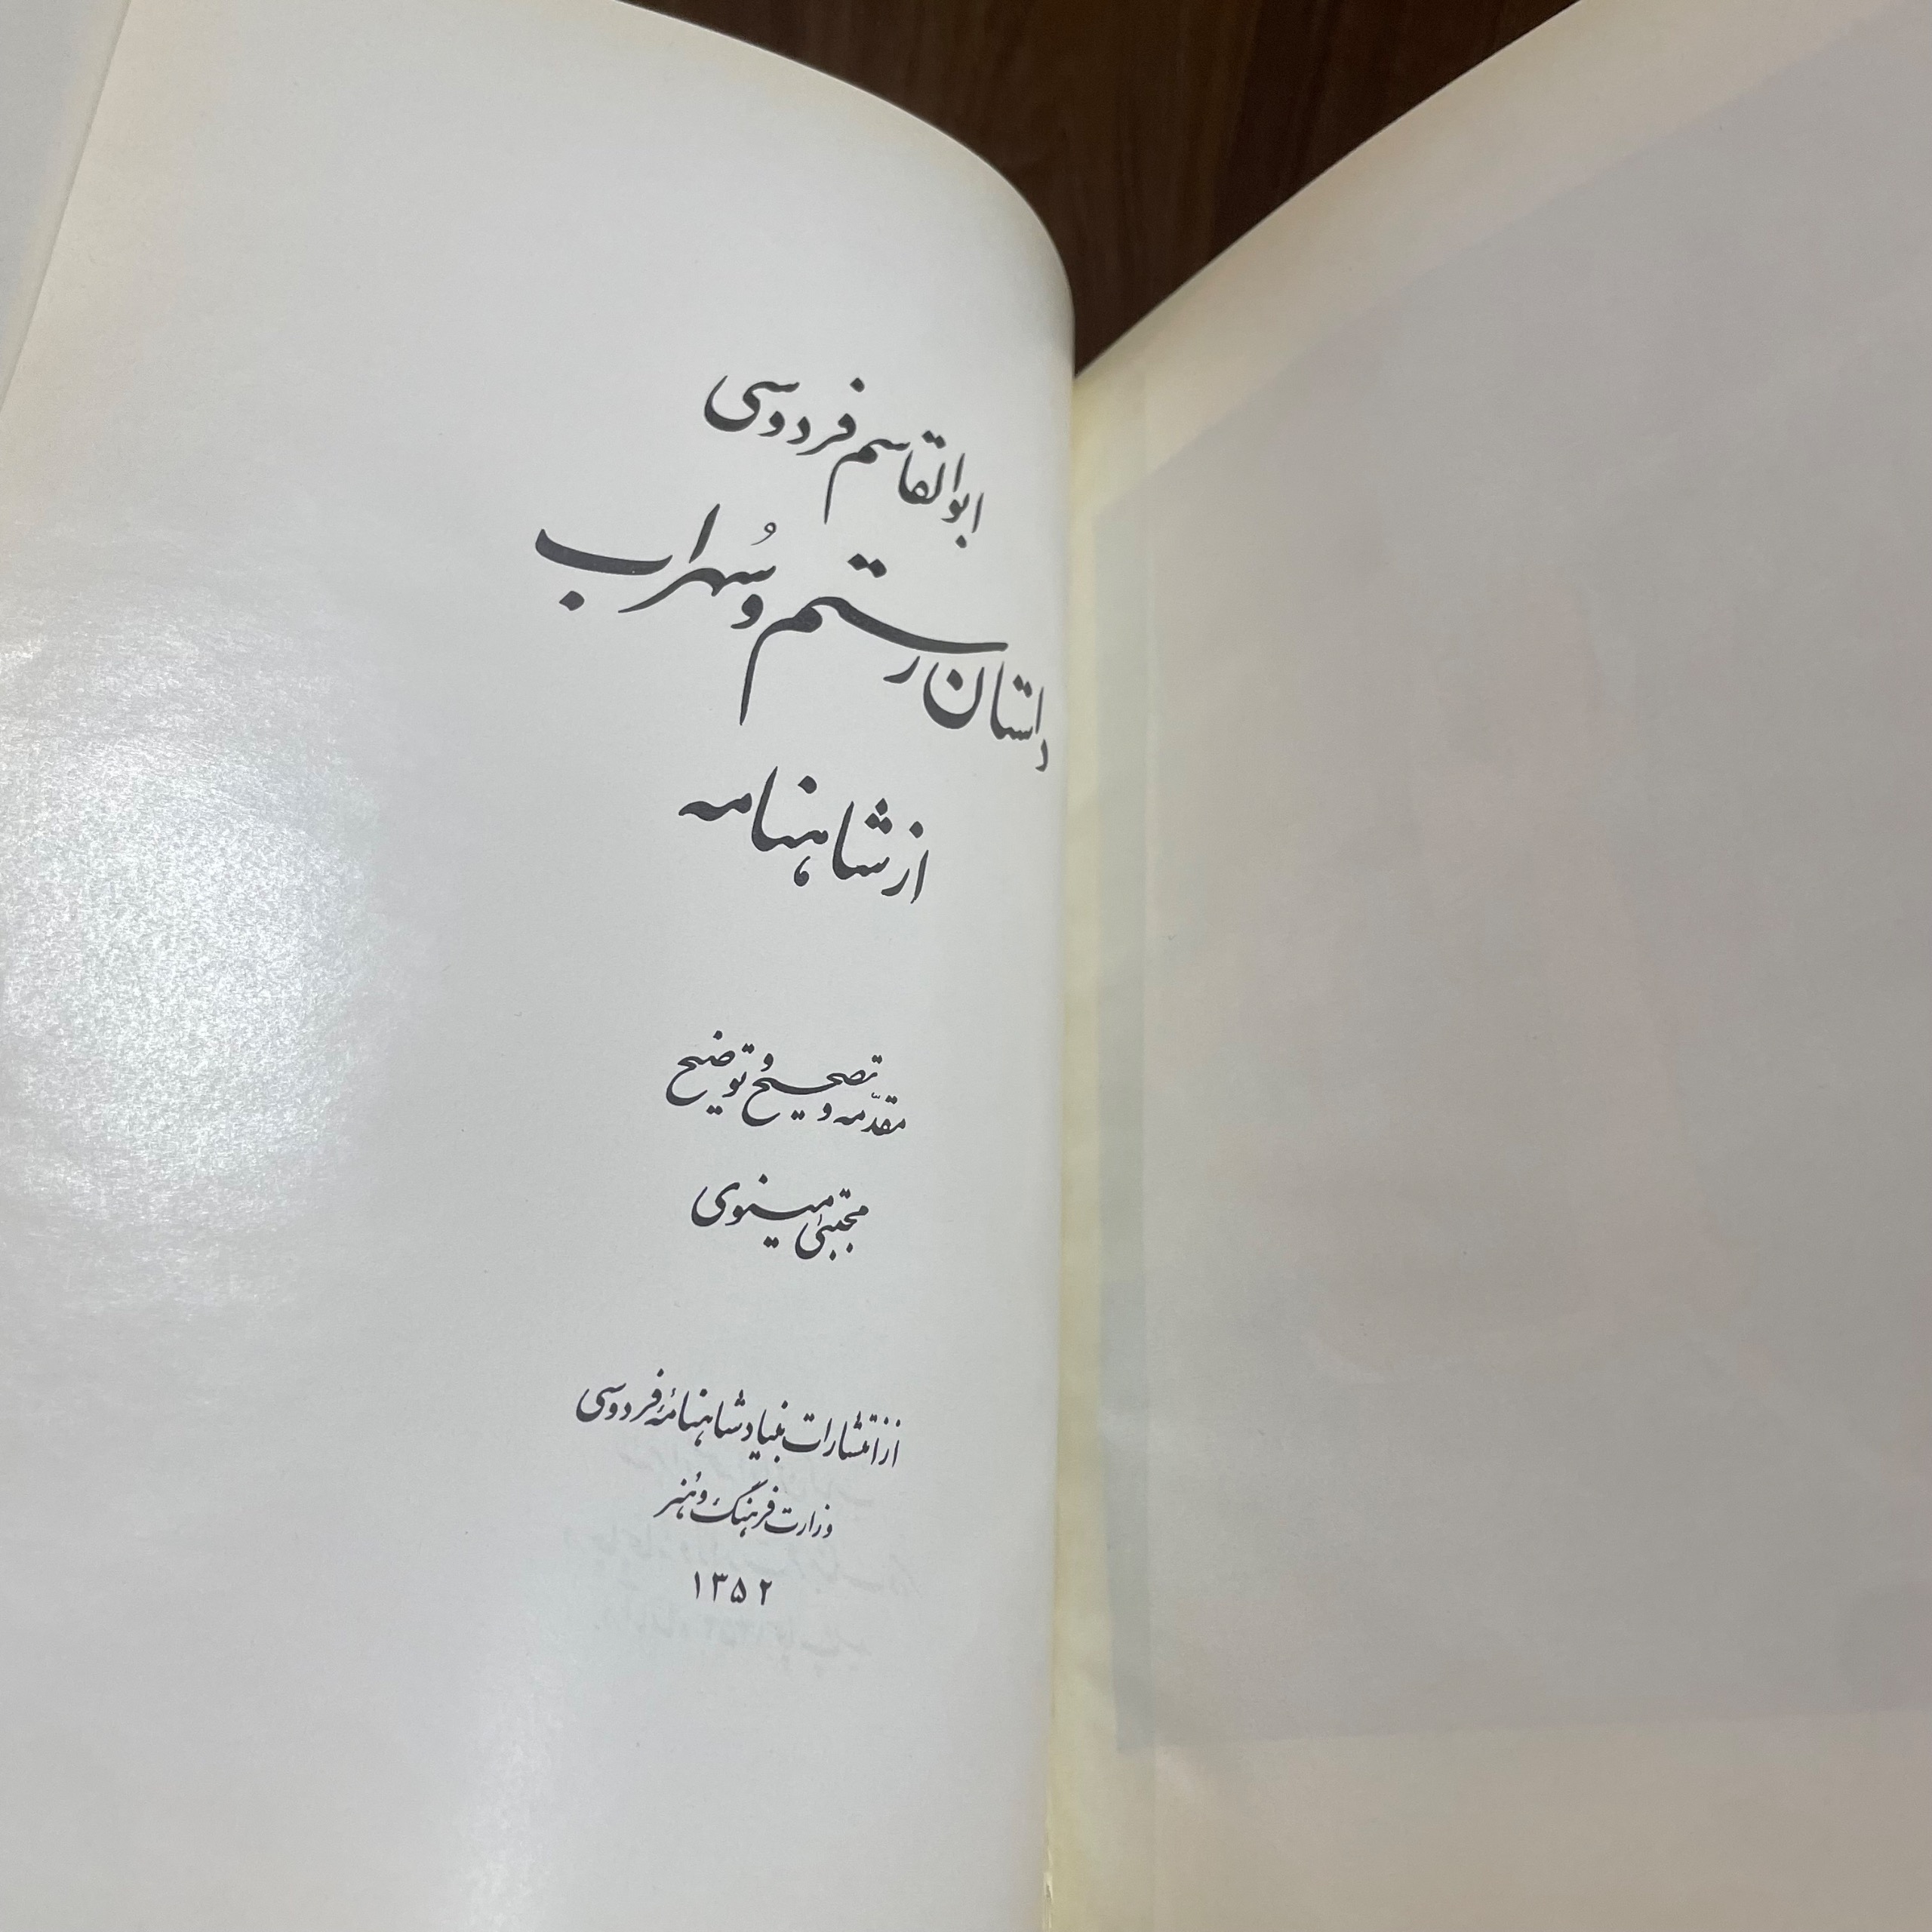 ابوالقاسم فردوسی
داستان رستم و سُهراب
از شاهنامه
مقدّمه و تصحیح و توضیح
مجتبی مینوی
از انتشارات بنیاد شاهنامهٔ فردوسی
وزارت فرهنگ و هُنر
۱۳۵۲